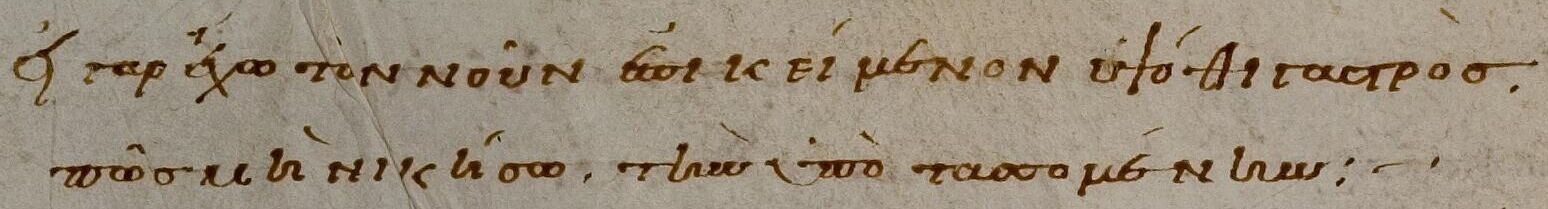 εἰ γαρ ἔχω τὸν νοῦν ἐπικείμενον ὑψόθι γαστρὸσ.
πῶσ μὴ νικήσω. τὴν ὑπὸτασσομένην; ~